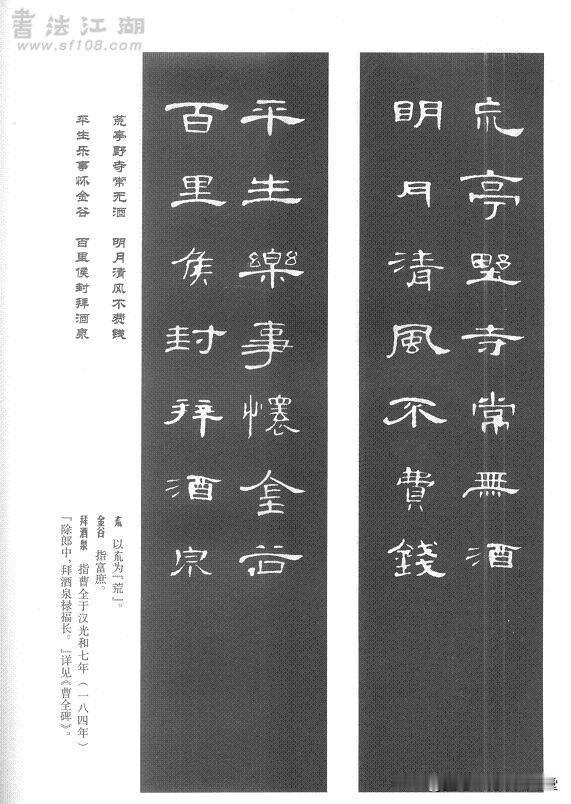 書法江湖
www.sf108.com
巟亭野寺常無酒
明月清風不費錢
平生樂事懷金谷
百里侯封拜酒泉
荒亭野寺常无酒 明月清风不费钱
平生乐事怀金谷 百里侯封拜酒泉
巟 以巟为『荒』。
金谷 指富庶。
拜酒泉 指曹全于汉光和七年（一八四年）
『除郎中，拜酒泉禄福长。』详见《曹全碑》。